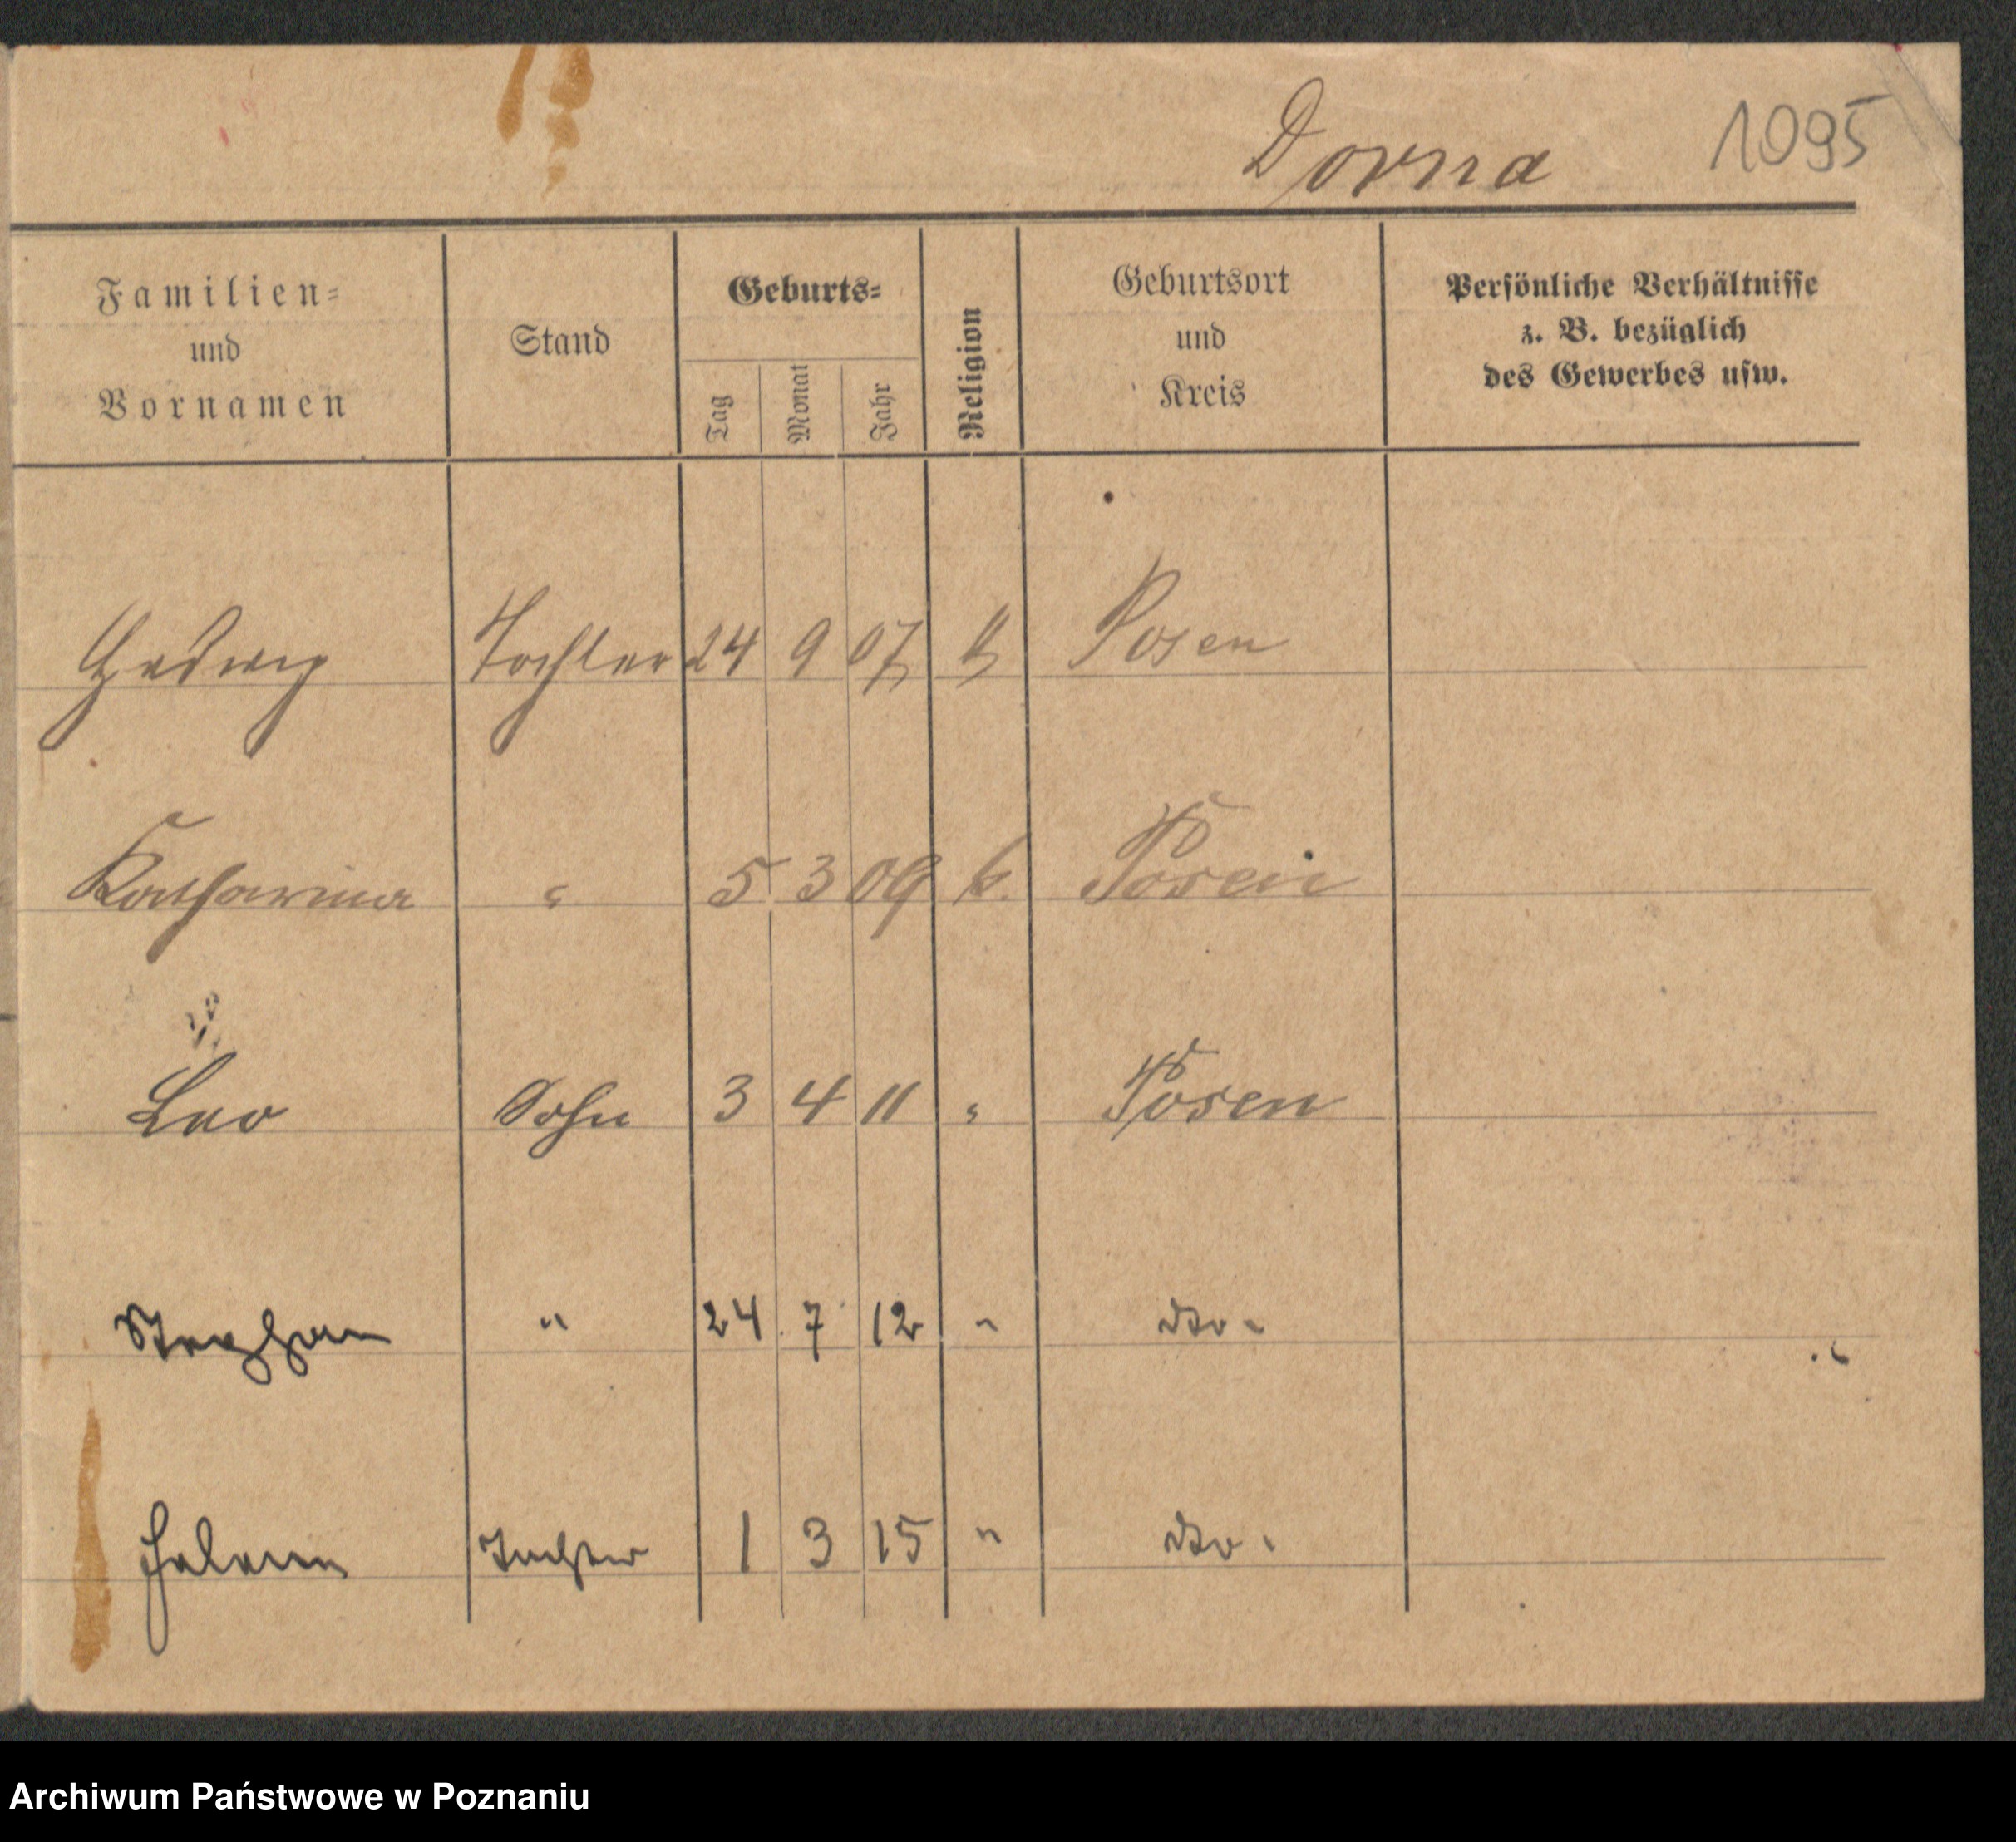 Dorna 1095
Familien= und Vornamen | Stand | Geburts= Tag Monat Jahr | Religion | Geburtsort und Kreis | Persönliche Verhältnisse z. B. bezüglich des Gewerbes usw.
Hedwig Tochter 24 9 07 k Posen
Katharina " 5 3 09 k. Posen
Leo Sohn 3 4 11 " Posen
Stephan " 24 7 12 " dto.
Helene Tochter 1 3 15 " dto.
Archiwum Państwowe w Poznaniu